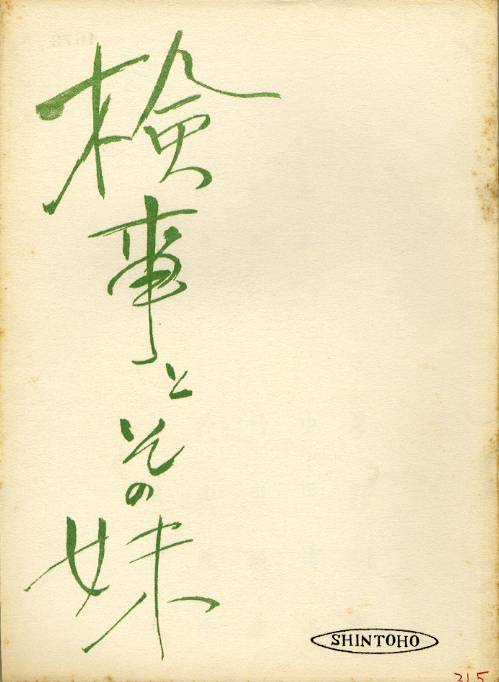 検事とその妹
SHINTOHO
315